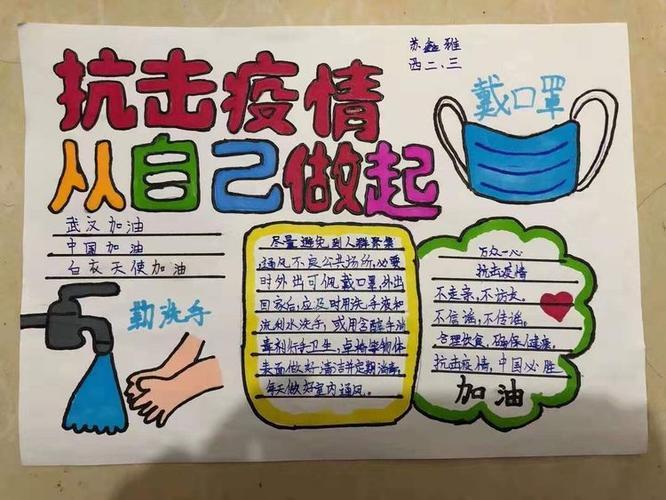 苏鑫雅
西二、三
抗击疫情
从自己做起
戴口罩
武汉加油
中国加油
白衣天使加油
勤洗手
尽量避免到人群聚集
通风不良公共场所,必要
时外出可佩戴口罩,外出
回家后,应及时用洗手液和
流利水洗手,或用含醇手消
毒剂行手卫生,桌椅等物体
表面做好清洁并定期消毒,
每天做好室内通风。
万众一心
抗击疫情
不走亲,不访友。
不信谣,不传谣。
合理饮食,确保健康。
抗击疫情,中国必胜
加油